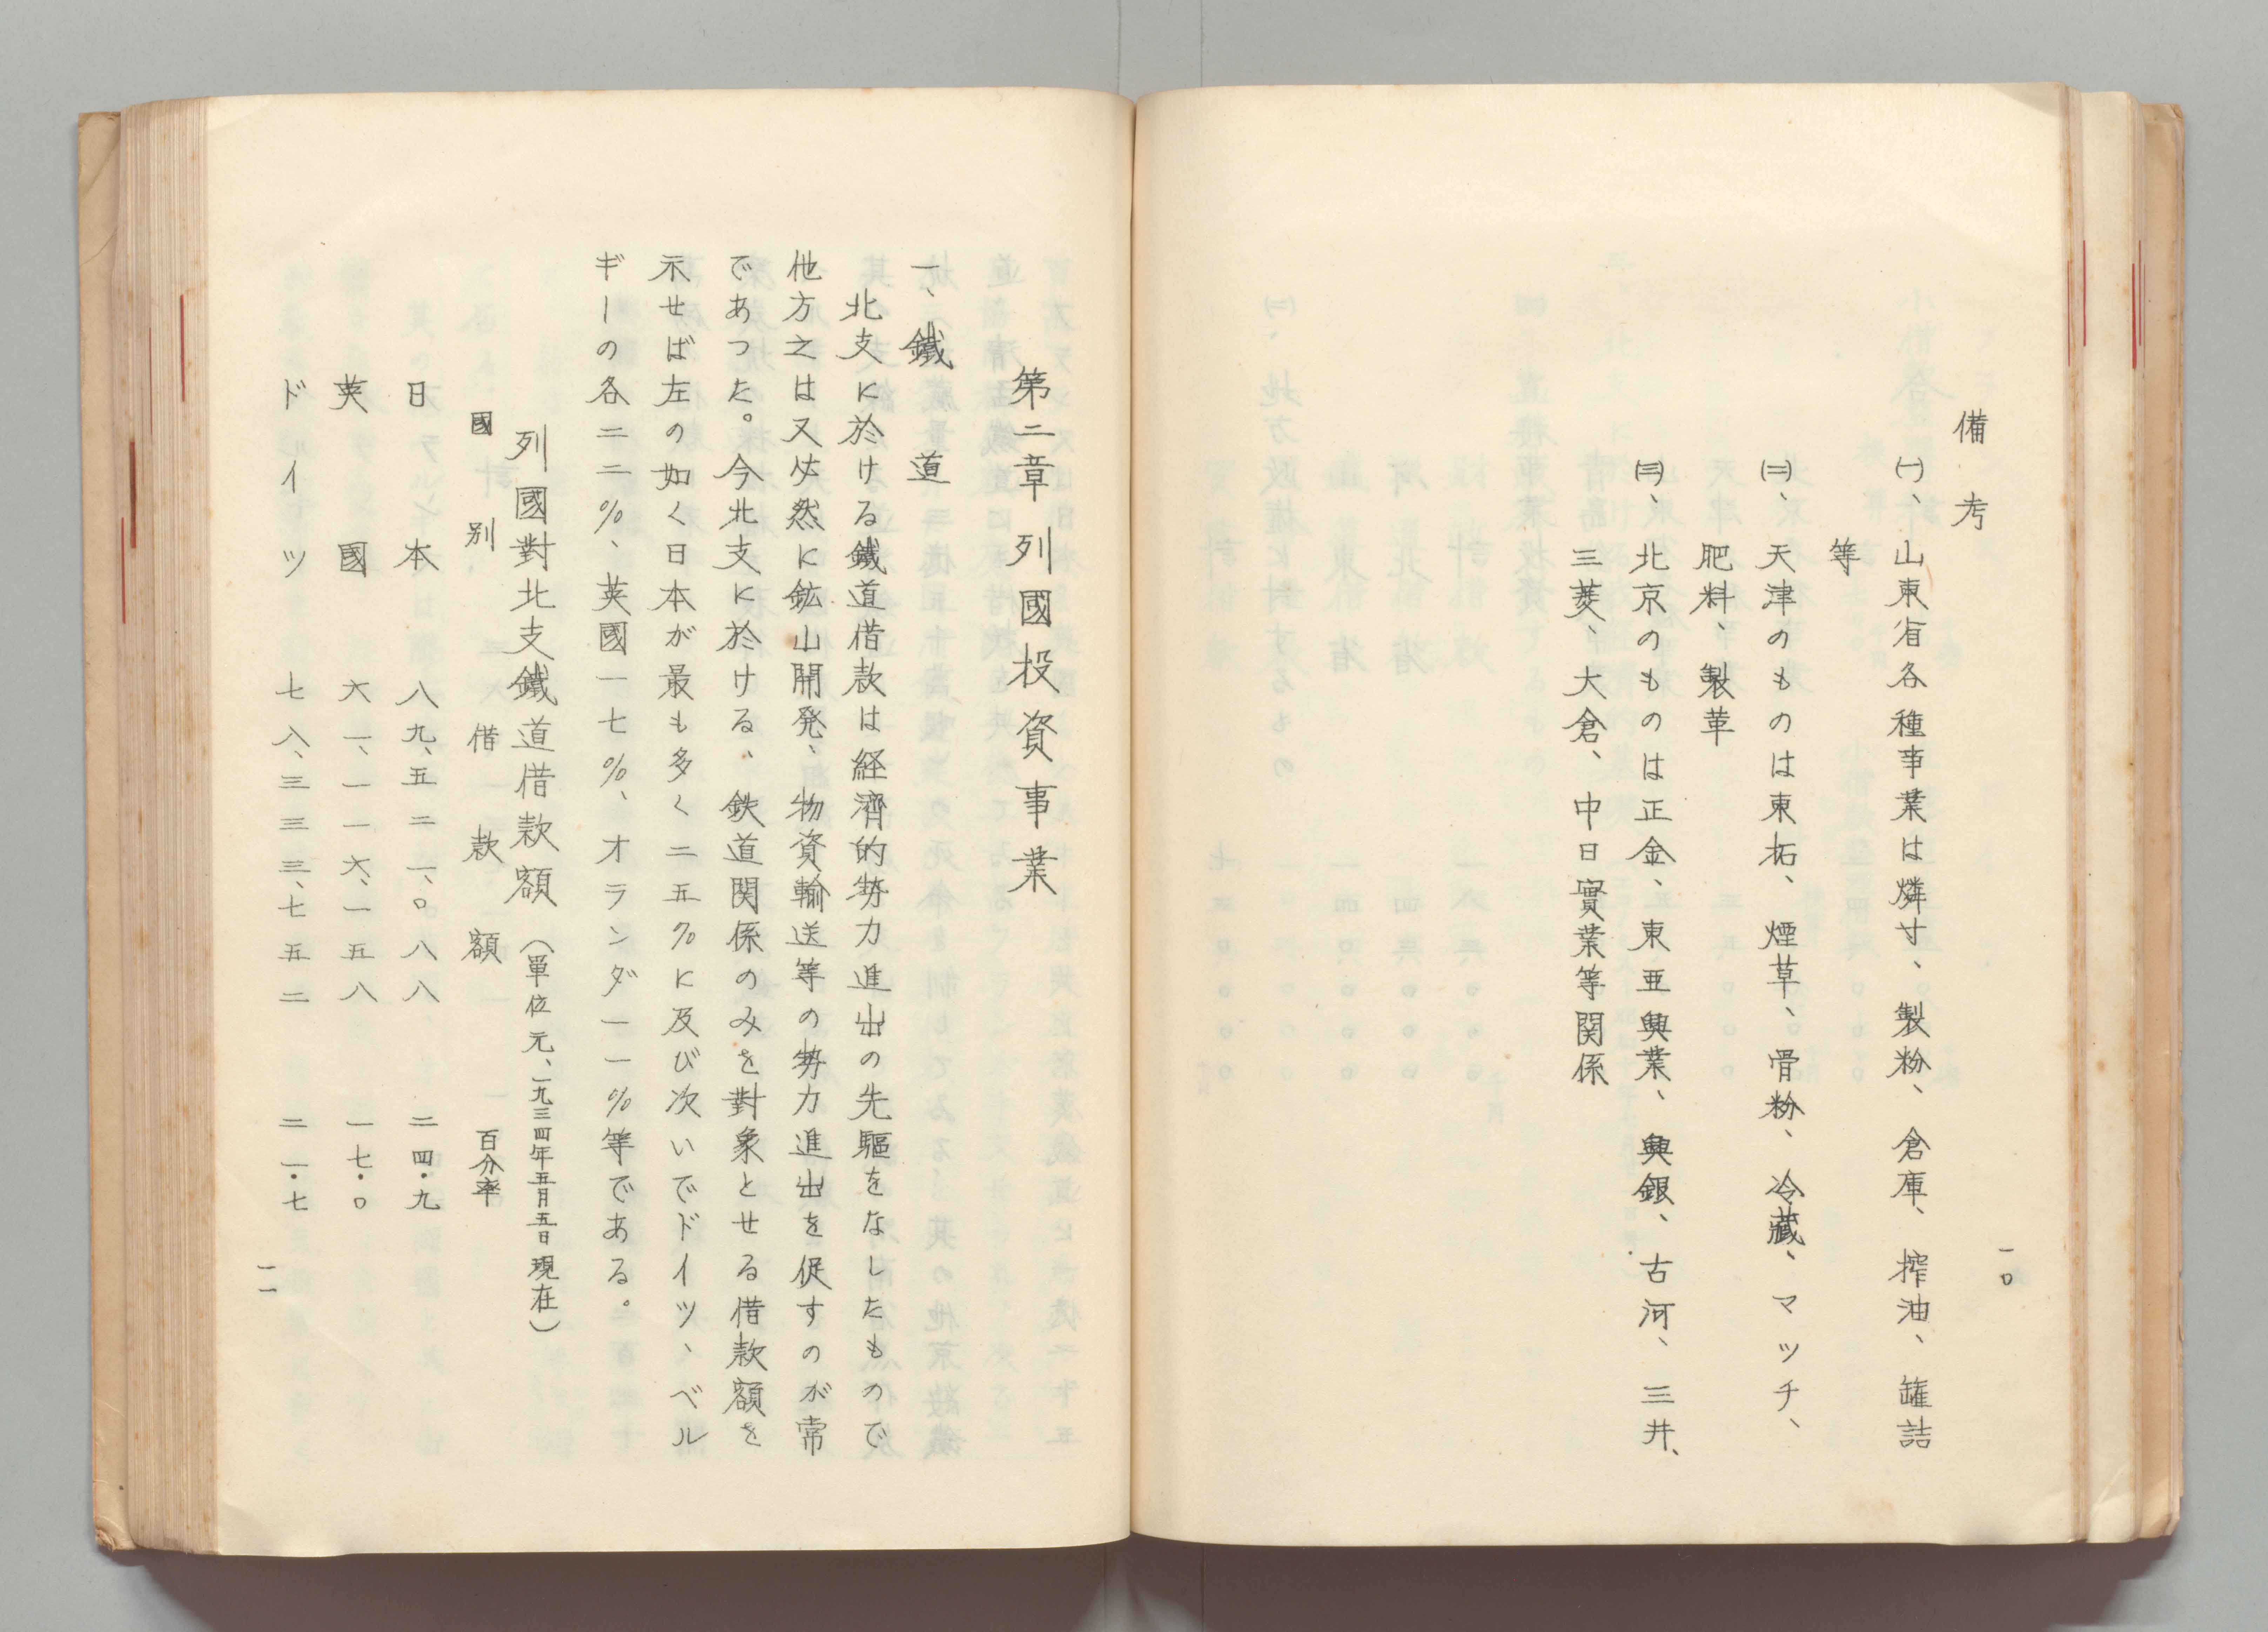 備考
㈠、山東省各種事業は燐寸、製粉、倉庫、搾油、罐詰
等
㈡、天津のものは東拓、煙草、骨粉、冷藏、マッチ、
肥料、製革
㈢、北京のものは正金、東亜興業、興銀、古河、三井、
三菱、大倉、中日實業等関係
一〇
第二章 列國投資事業
一、鐵道
北支に於ける鐵道借款は経濟的勢力進出の先驅をなしたもので
他方之は又必然に鉱山開発、物資輸送等の勢力進出を促すのが常
であった。今北支に於ける、鉄道関係のみを對象とせる借款額を
示せば左の如く日本が最も多く二五%に及び次いでドイツ、ベル
ギーの各二二%、英國一七%、オランダ一一%等である。
列國對北支鐵道借款額（單位元、一九三四年五月五日現在）
國別 借款額 百分率
日本 八九、五二一、〇八八 二四・九
英國 六一、一一六、一五八 一七・〇
ドイツ 七八、三三三、七五二 二一・七
一一